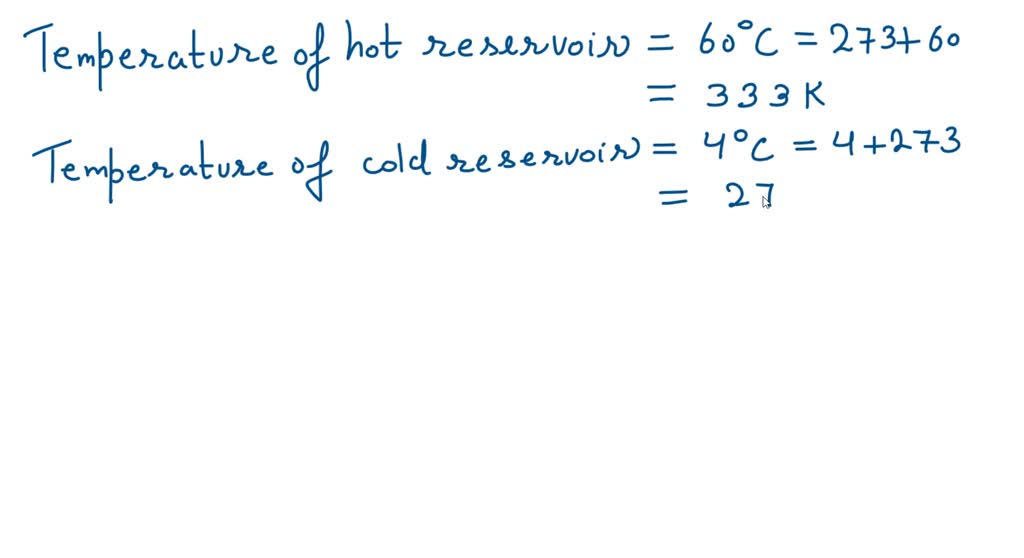 Temperature of hot reservoir = 60°C = 273+60
= 333 K
Temperature of cold reservoir = 4°C = 4+273
= 27